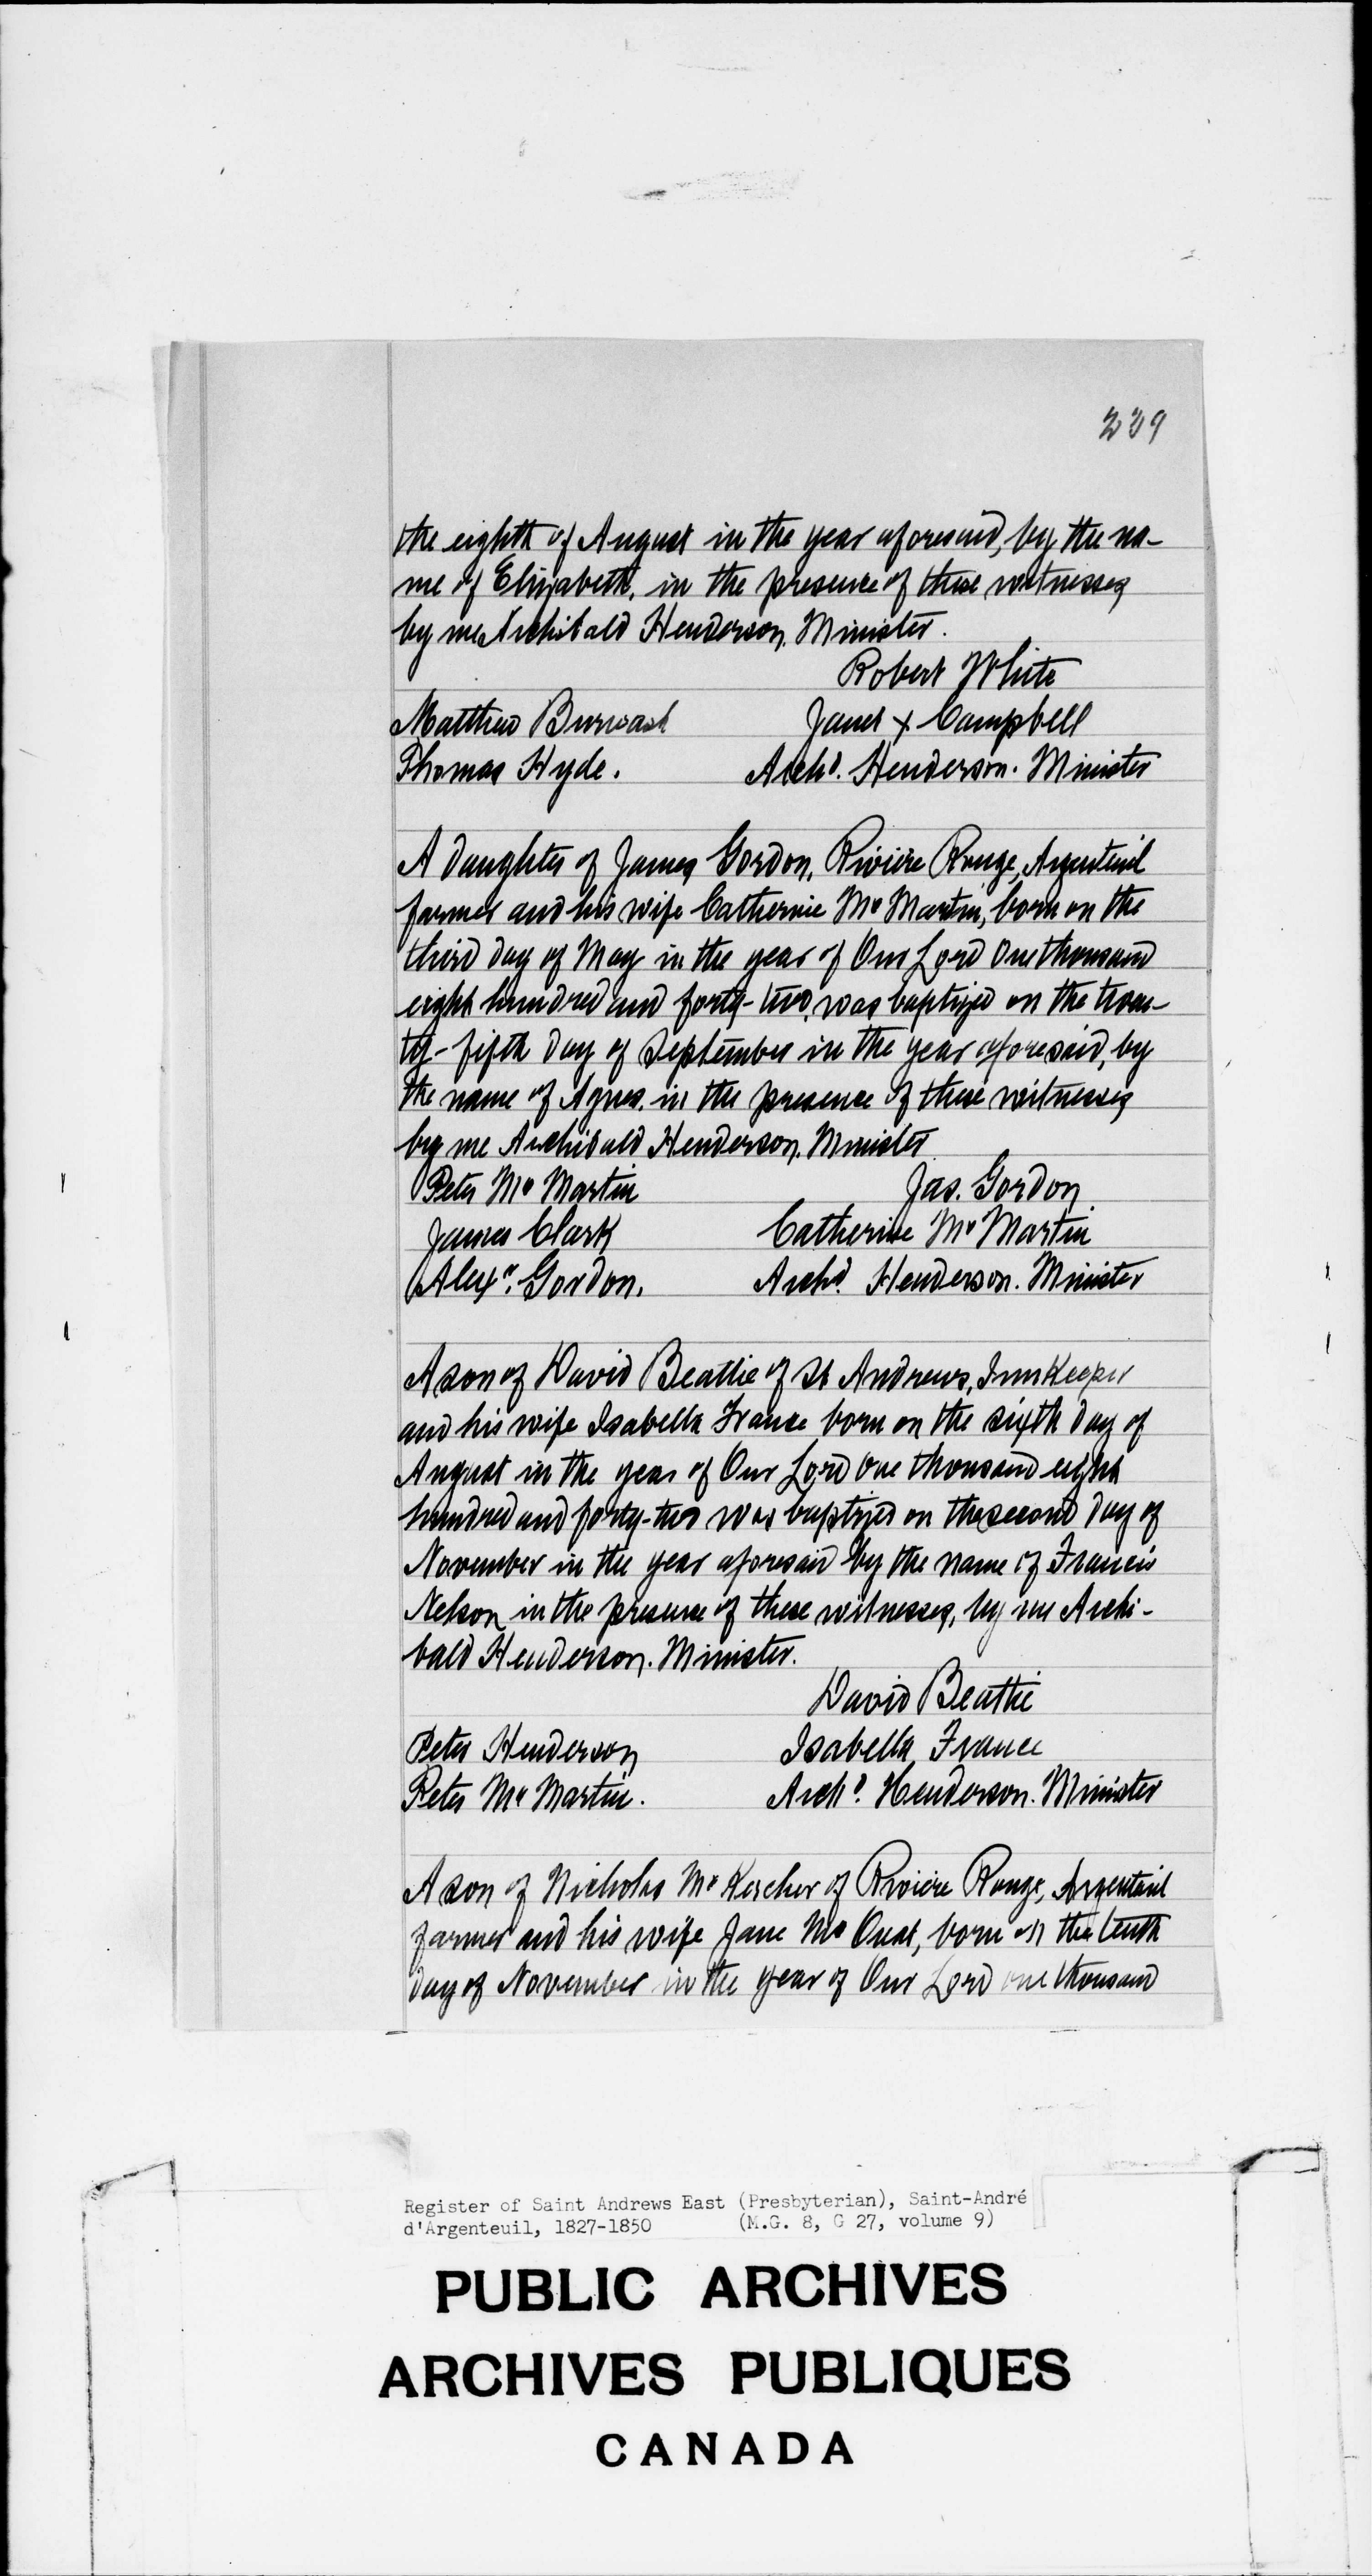 229
the eighth of August in the year aforesaid, by the na-
me of Elizabeth. in the presence of these witnesses
by me Archibald Henderson. Minister.
Robert White
Matthew Burwash Janet x Campbell
Thomas Hyde. Archd. Henderson. Minister
A daughter of James Gordon, Rivière Rouge, Argenteuil
farmer and his wife Catherine Mc Martin, born on the
third day of May in the year of Our Lord One thousand
eight hundred and forty-two, was baptized on the twen-
ty-fifth day of September in the year aforesaid, by
the name of Agnes. in the presence of these witnesses
by me Archibald Henderson. Minister
Peter Mc Martin Jas. Gordon
James Clark Catherine Mc Martin
Alexr. Gordon. Archd. Henderson. Minister
A son of David Beattie of St Andrews, InnKeeper
and his wife Isabella France born on the sixth day of
August in the year of Our Lord One thousand eight
hundred and forty-two was baptized on the second day of
November in the year aforesaid by the name of Francis
Nelson in the presence of these witnesses, by me Archi-
bald Henderson. Minister.
David Beattie
Peter Henderson Isabella France
Peter Mc Martin. Archd. Henderson. Minister
A son of Nicholas Mc Kercher of Rivière Rouge, Argenteuil
farmer and his wife Jane Mc Ouat, born on the tenth
day of November in the year of Our Lord one thousand
Register of Saint Andrews East (Presbyterian), Saint-André
d'Argenteuil, 1827-1850 (M.G. 8, G 27, volume 9)
PUBLIC ARCHIVES
ARCHIVES PUBLIQUES
CANADA